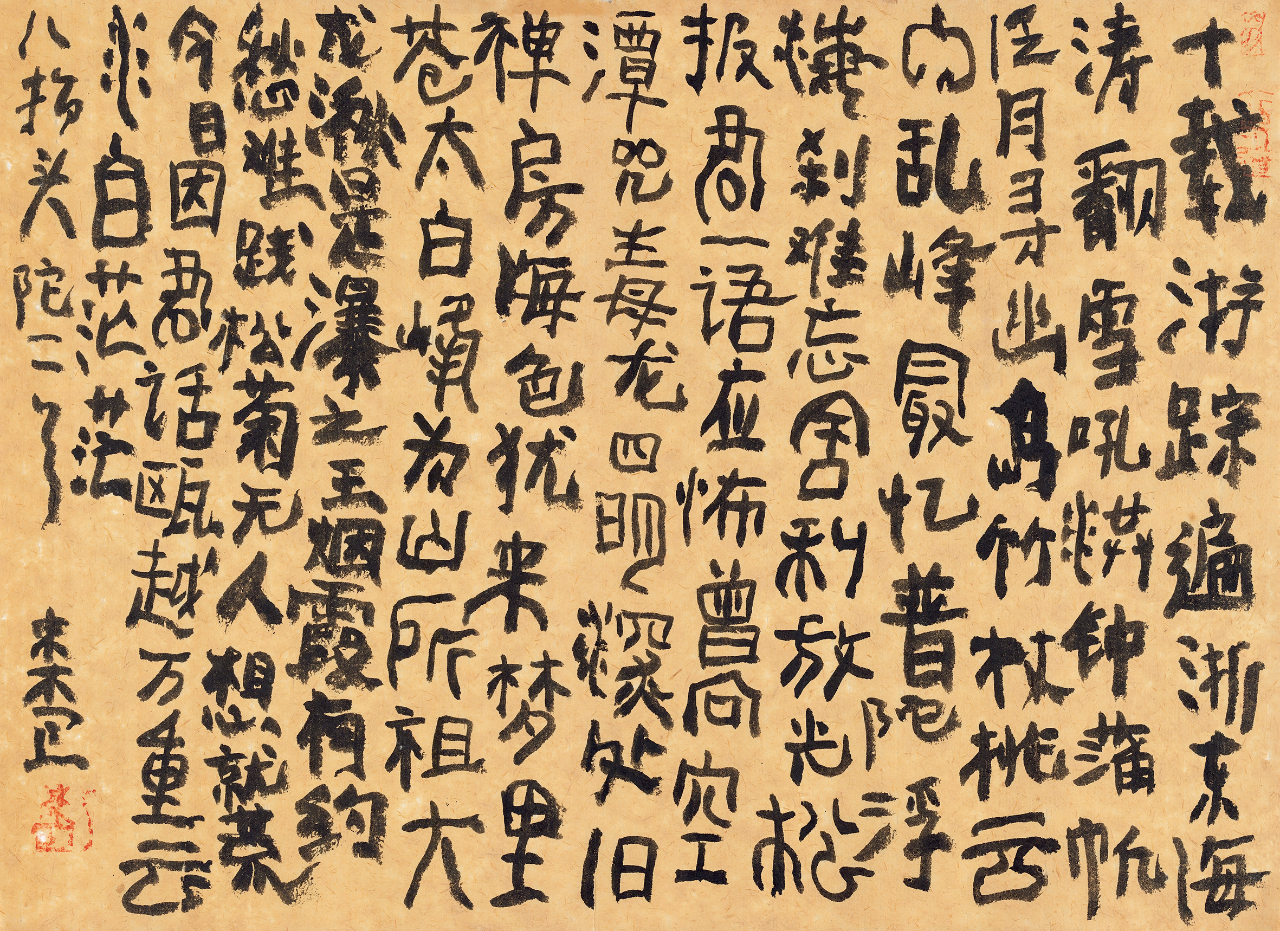 十载游踪遍浙东海
涛翻雪吼钟蒲帆
任月寻幽岛竹杖桃云
向乱峰最忆普陀浮
刹难忘舍利放光松
报君一语应怖曾向空
潭咒毒龙四明处旧
禅房海色犹来梦里
苍太白峰为山所祖大
龙湫是瀑之王烟霞有约
愁难践松菊无人想就荒
今日因君话瓯越万重云
水自茫茫
八指头陀二